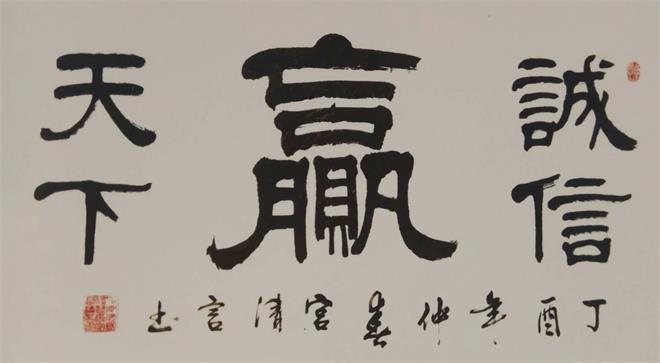 誠信
贏
天下
丁酉年仲春宫清言书